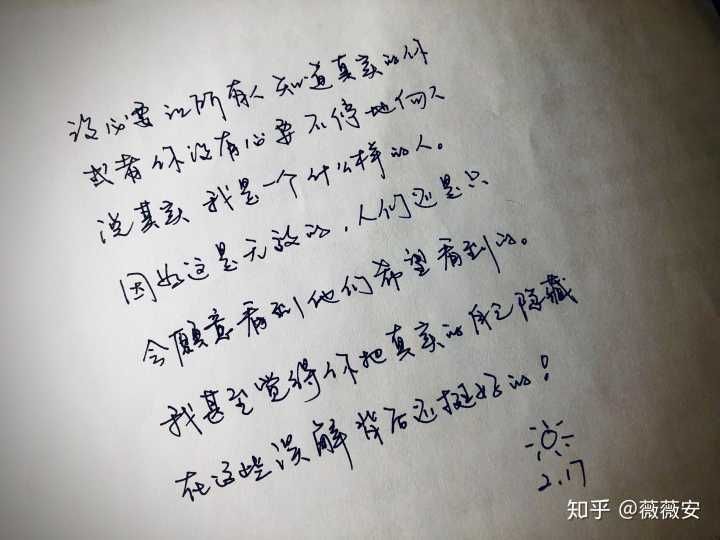 没必要让所有人知道真实的你
或者你没有必要不停地向人
说其实我是一个什么样的人。
因为这是无效的,人们还是只
会愿意看到他们希望看到的。
我甚至觉得你把真实的自己隐藏
在这些误解背后还挺好的!
2.17
知乎 @薇薇安